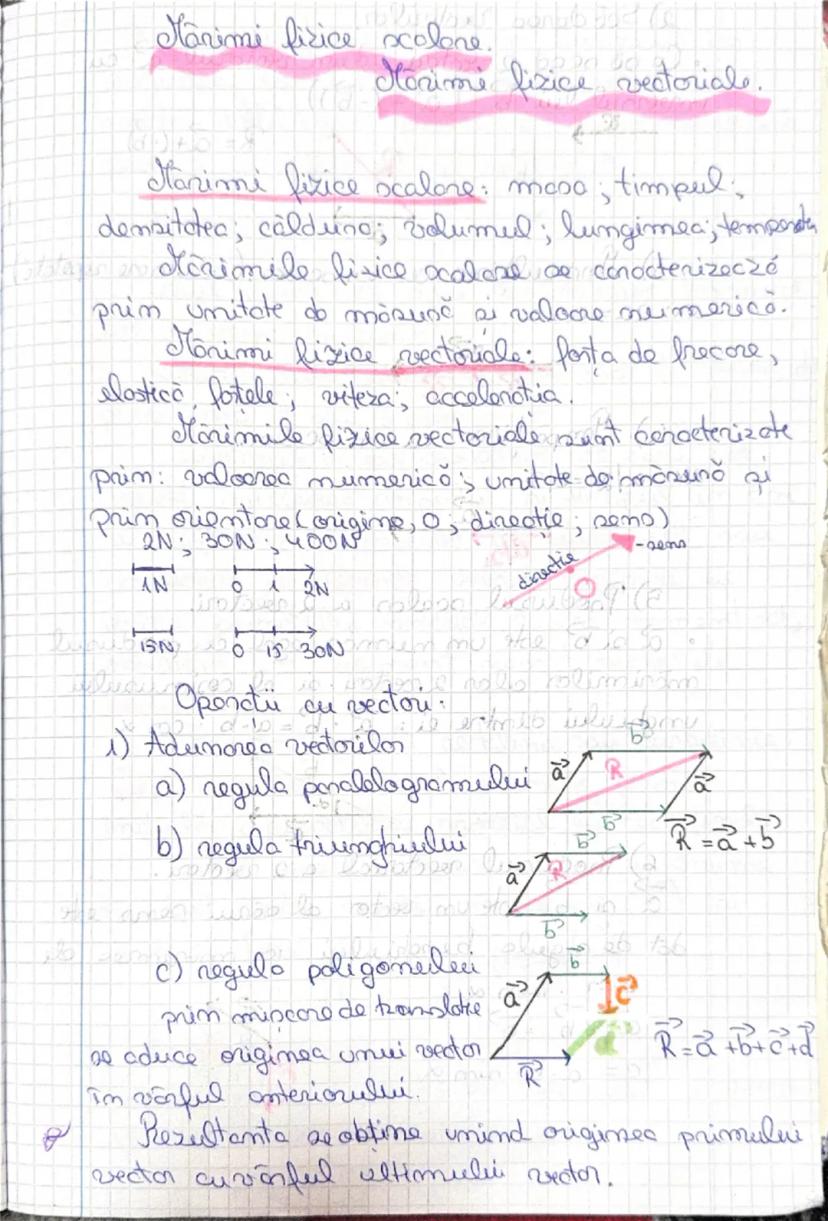 Mărimi fizice scalare.
Mărimi fizice vectoriale.
Mărimi fizice scalare: masa; timpul;
densitatea; căldura; volumul; lungimea; temperatu
Mărimile fizice scalare se caracterizează
prin unitate de măsură și valoare numerică.
Mărimi fizice vectoriale: forța de frecare,
elastică, foțele; viteza; accelerația.
Mărimile fizice vectoriale sunt caracterizate
prin: valoarea numerică; unitate de măsură și
prin orientare (origine, O; direcție; sens)
2N; 30N; 400N
direcție
-sens
O
1N 0 1 2N
15N 0 15 30N
Operații cu vectori:
1) Adunarea vectorilor
a) regula paralelogramului
b⃗
a⃗ R a⃗
b⃗
R⃗ = a⃗ + b⃗
b) regula triunghiului
b⃗
a⃗ R
b⃗
c) regula poligonului
b⃗
a⃗ c⃗
prin mișcare de translație
d⃗
R⃗ = a⃗ + b⃗ + c⃗ + d⃗
se aduce originea unui vector
R⃗
în vârful anteriorului.
Rezultanta se obține unind originea primului
vector cu vârful ultimului vector.